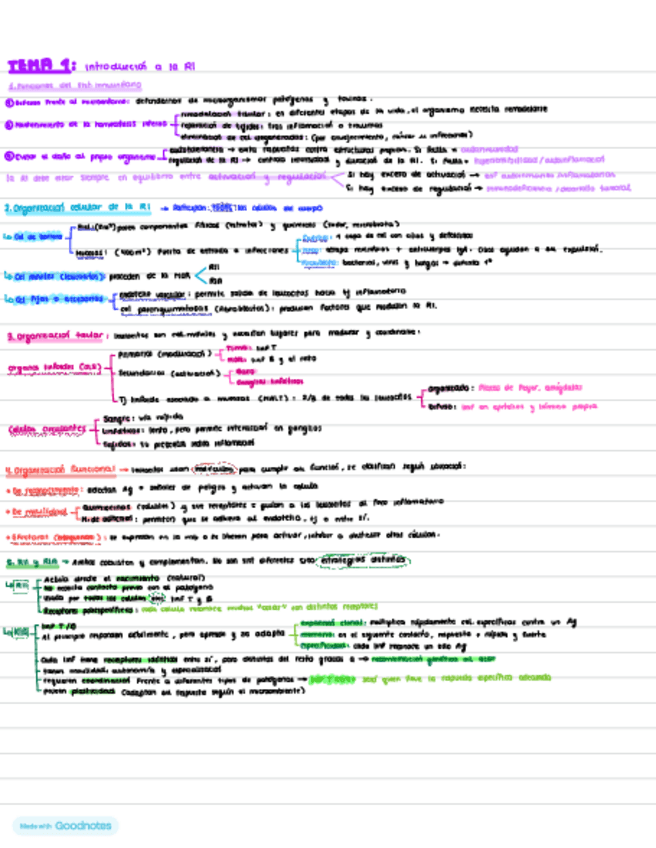 TEMA 1: introducció a la RI
1. Funciones del Sist. inmunitario
① Defensa frente al microorganismo: defendernos de microorganismos patógenos y toxinas.
② Mantenimiento de la homeostasis interna
remodelación tisular: en diferentes etapas de la vida, el organismo necesita remodelarse
reparación de tejidos: tras inflamación o traumas
eliminación de cel degeneradas: (por envejecimiento, cáncer o infección)
③ Evitar el daño al propio organismo
autotolerancia → evita respuestas contra estructuras propias. Si falla = autoinmunidad
regulación de la RI → controla intensidad y duración de la RI. Si falla = hipersensibilidad/autoinflamación
la RI debe estar siempre en equilibrio entre activación y regulación
Si hay exceso de activación →
Si hay exceso de regulación → inmunodeficiencia / desarrollo tumoral
2. Organización celular de la RI → Participan TODAS las células del cuerpo
Cel de barrera
Piel: (2m²) pares componentes físicos (estrato) y químicos (sudor, microbiota)
Mucosas: (400m²) Puerta de entrada a infecciones
atrapa microbios + anticuerpos IgA. Cilios ayudan a su expulsión.
bacterias, virus y hongos → defensa 1ª
Cel móviles (leucocitos): proceden de la MOR
RII
RIA
Cel fijas o accesorias
endotelio vascular: permite salida de leucocitos hacia tj inflamatorio
cel parenquimatosas (fibroblastos): producen factores que modulan la RI.
3. Organizació tisular: leucocitos son cel móviles y necesitan lugares para madurar y coordinarse:
Órganos linfoides
Primarios (maduración)
Timo: linf T
MOR: linf B y el resto
Secundarios (activación)
Bazo
Ganglios linfáticos
Tj linfoide asociado a mucosas (MALT): 2/3 de todos los leucocitos
organizado: Placas de Peyer, amígdalas
difuso: linf en epitelios y lámina propia
Células circulantes
Sangre: vía rápida
Linfáticos: lento, pero permite interacción en ganglios
Tejidos: tj presenta señal inflamación
4. Organizació funcional → leucocitos usan moléculas para cumplir su función, se clasifican según ubicación:
• De reconocimiento: detectan Ag o señales de peligro y activan la célula
• De movilidad
Quimiocinas (solubles) y sus receptores = guían a los leucocitos al foco inflamatorio
M. de adhesió: permiten que se adhieran al endotelio, tj o entre sí.
• Efectoras: se expresan en la mb o se liberan para activar, inhibir o destruir otras células.
5. RII y RIA → Ambas coexisten y complementan. No son sist diferentes sino estrategias distintas
RII
Activa desde el nacimiento (natural)
No necesita contacto previo con el patógeno
Usada por todas las células sin linf T y B
Receptores poliespecíficos:
RIA
linf T/B
Al principio responden débilmente, pero aprende y se adapta
expansión clonal: multiplica rápidamente cel específicas contra un Ag
memoria: en el siguiente contacto, respuesta + rápida y fuerte
especificidad: cada linf reconoce un solo Ag
Cada linf tiene receptores idénticos entre sí, pero distintos del resto gracias a → recombinación genética al azar
tienen movilidad, autonomía y especialización
requieren coordinación frente a diferentes tipos de patógenos →
poseen plasticidad (adaptan su respuesta según el microambiente)
Made with Goodnotes